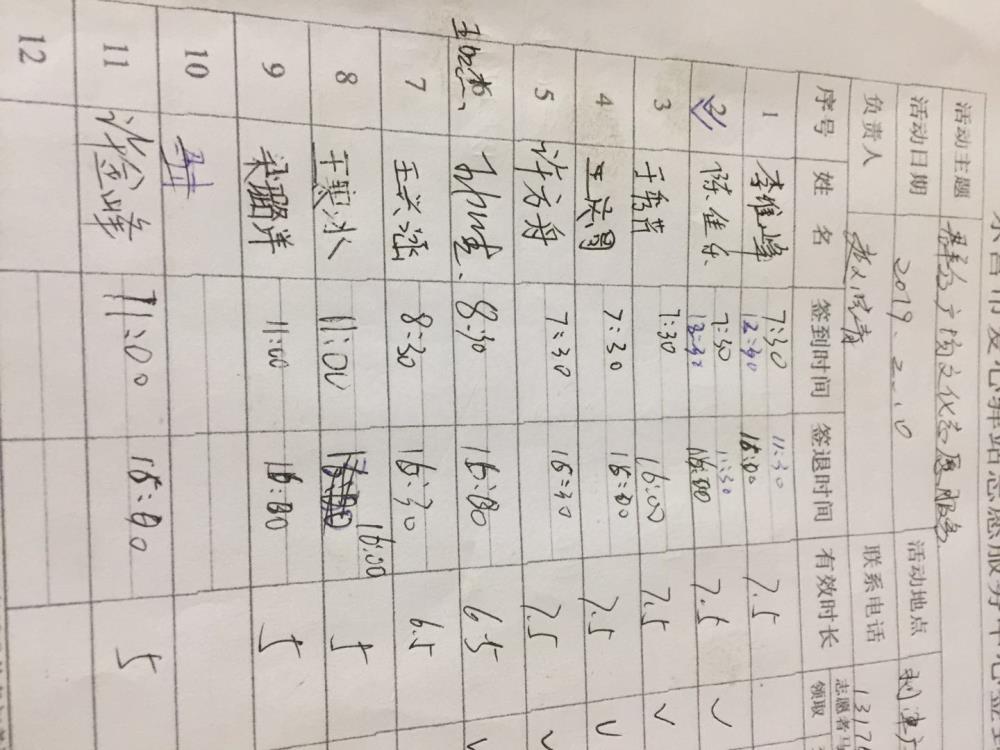 东营市爱心驿站志愿服务
活动主题 群分广场文化志愿服务
活动日期 2019.2.10 活动地点 利津
负责人 联系电话 13176
序号 姓名 签到时间 签退时间 有效时长 志愿者 领取
1 李维峰 7:30 12:30 11:30 16:00 7.5
2 陈佳乐 7:30 12:30 11:30 16:00 7.5 ✓
3 于秀芹 7:30 16:00 7.5 ✓
4 7:30 16:00 7.5 ✓
5 许方舟 7:30 16:30 7.5 ✓
8:30 16:00 6.5 ✓
7 王兴涨 8:30 16:30 6.5
8 于寒冰 11:00 16:00 5
9 梁璐洋 11:00 16:00 5
10
11 徐金峰 11:00 16:00 5
12